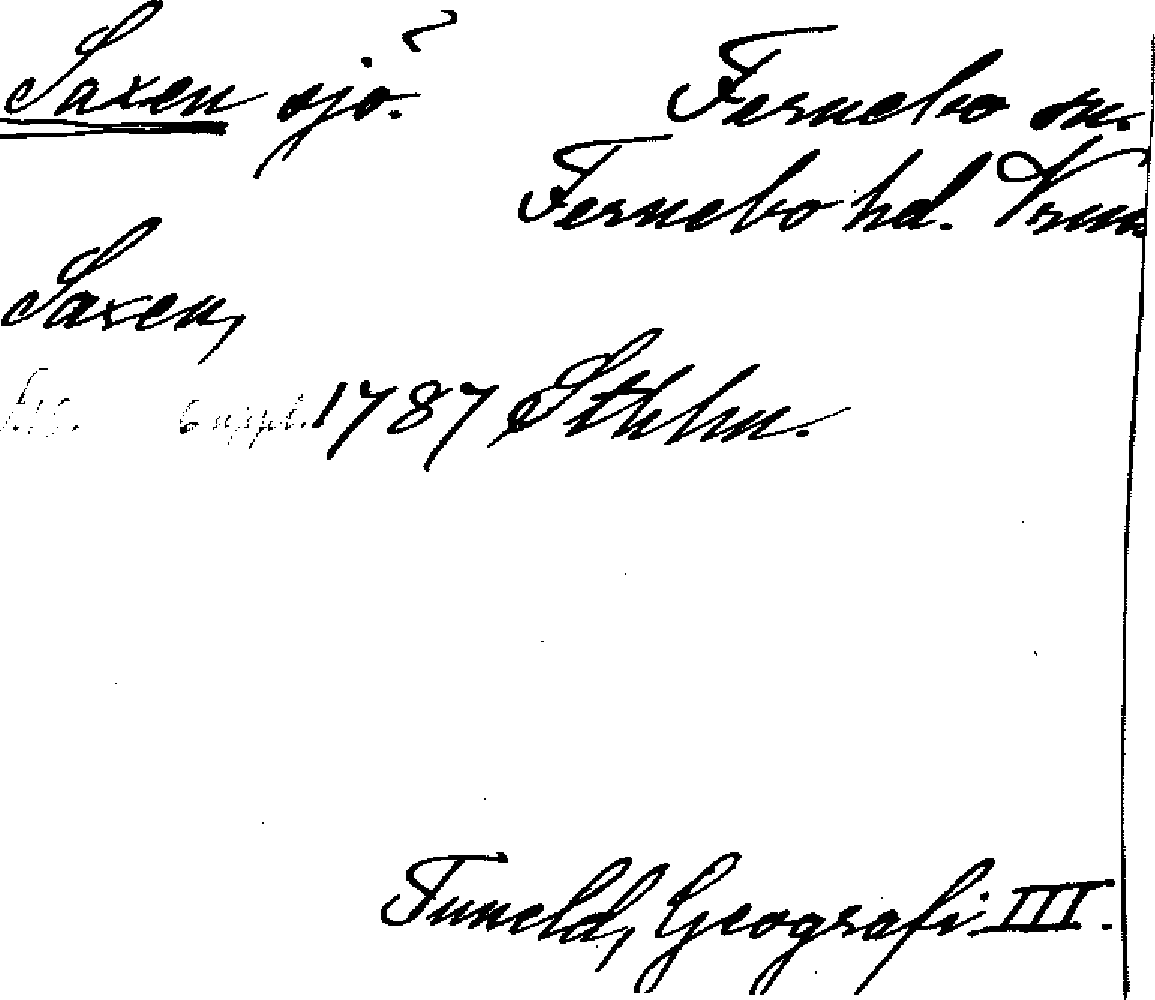 Saxen sjö. Fernebo sn.
Fernebo hd. Vrml.
Saxen,
6 uppl. 1787 Sthlm.
Tuneld, Geografi III.